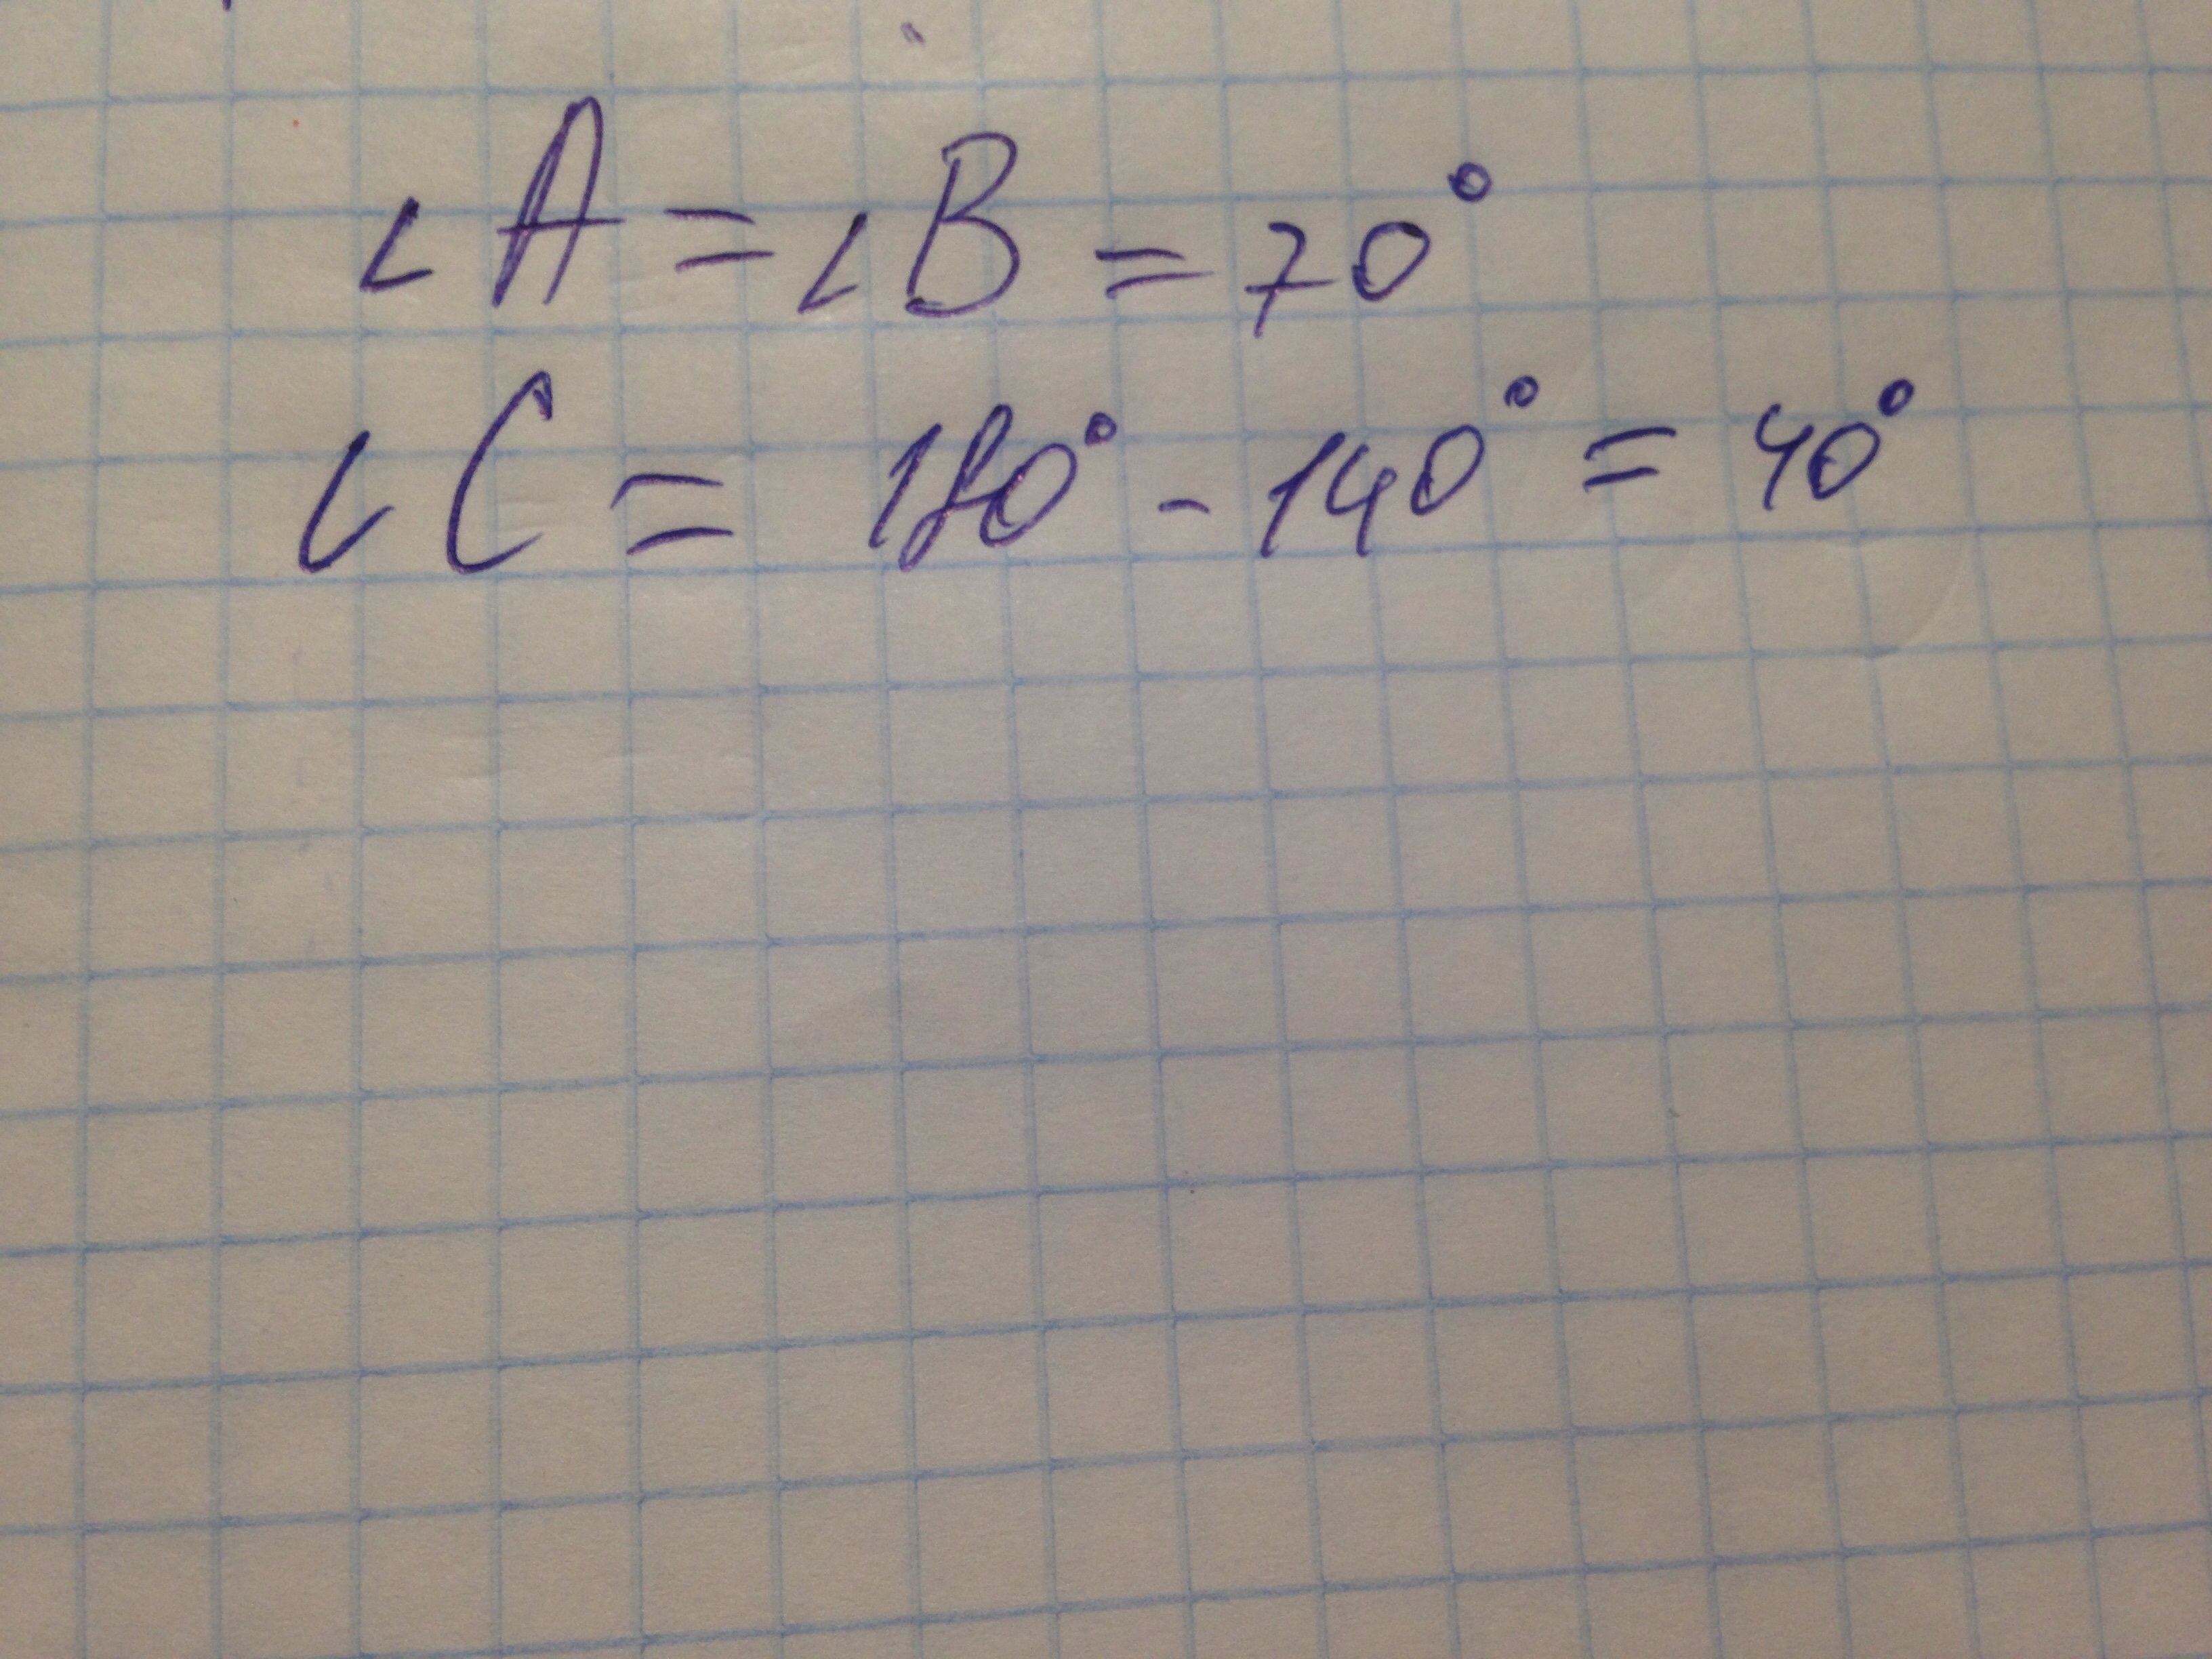 ∠A = ∠B = 70°
∠C = 180° - 140° = 40°